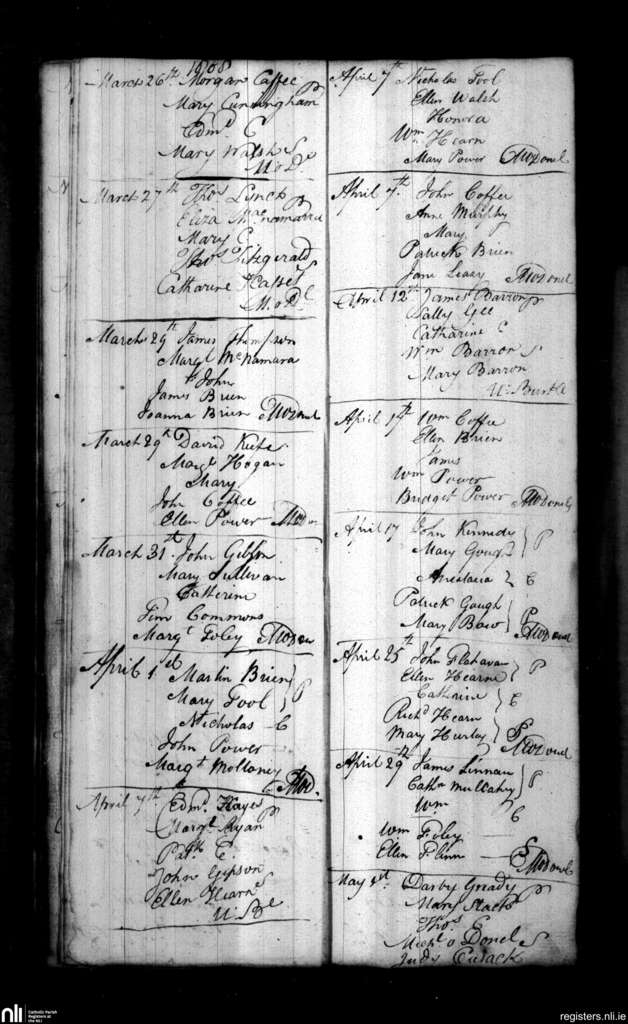 1808
March 26th Morgan Caffee P
Mary Cunningham
Edmd C
Mary Walsh S
March 27th Thos Lynch P
Eliza Macnamarra
Mary C
Thos Fitzgerald
Catharine S
March 29th James Thompson
Margt McNamara
John
James Brien
Joanna Brien McDonel
March 29th David
Margt Hogan
Mary
John Coffee
Ellen Power
March 31st John
Mary Sullivan
Catherine
Tim Commons
Margt Foley
April 1st Martin Brien
Mary Fool } P
Nicholas - C
John Power
Margt Mollaney
April 7th Edmd Hayes
Margt Ryan P
Patk C.
John Gipson
Ellen Hearn S
April 7th Nicholas Fool
Ellen Walsh
Honora
Wm Hearn
Mary Power McDonel
April 7th John Coffee
Anne Murphy
Mary
Patrick Brien
Jane Leary McDonel
April 12th James Barron P
Sally Gee
Catharine C
Wm Barron S
Mary Barron
April 17th Wm Coffee
Ellen Brien
James
Wm Power
Bridget Power McDonel
April 17 John Kennedy
Mary Gough } P
Anastacia } C
Patrick Gough
Mary Baw } S
McDonel
April 25th John Flahavan
Ellen Hearne } P
Cathrine } C
Richd Hearn
Mary Hurley } S
McDonel
April 29th James Linnan
Cathn Mullcahy } P
Wm C
Wm Foley
Ellen Flinn S
McDonel
May 1st Darby Gready
Mary Slack P
Thos C
Michl o Donel S
Judy Cusack
nli
Catholic Parish
Registers at
the NLI
registers.nli.ie